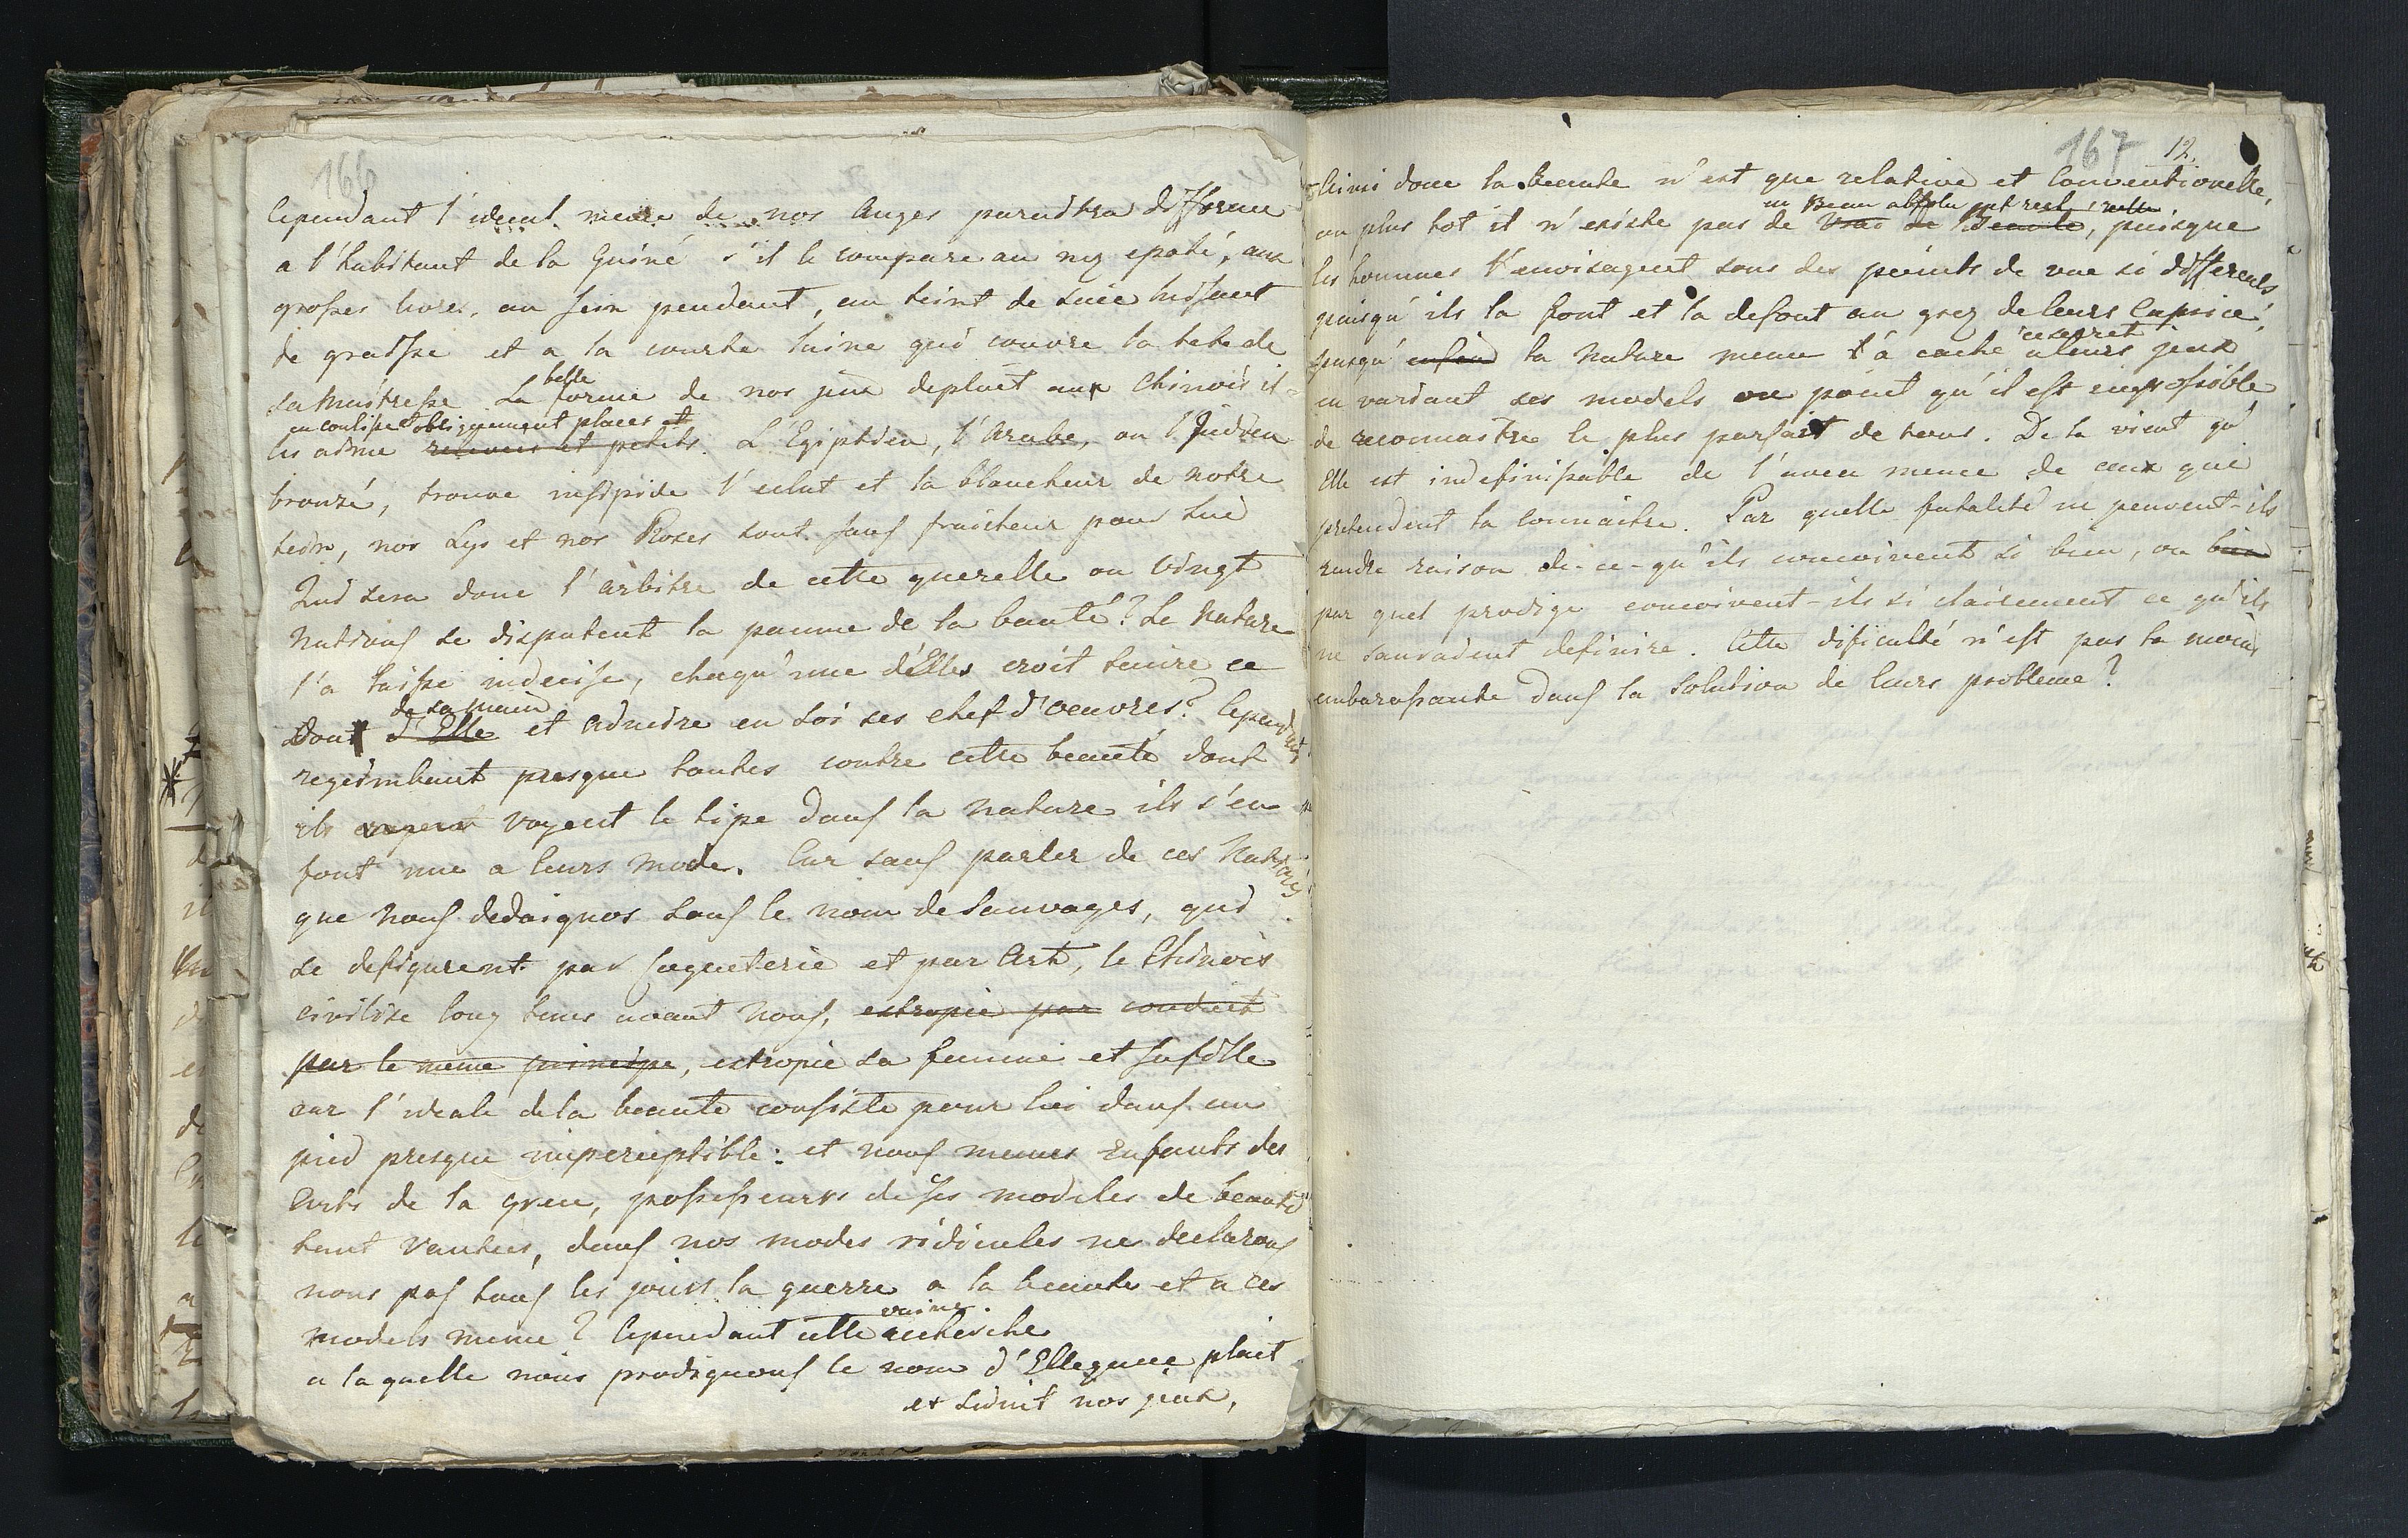 166
Cependant l'ideal meme de nos Anges paraidtra difforme
a l'habitant de la Guiné s'il le compare au nez epaté, aux
grosses livres, au sein pendant, au teint de suie luisant
de graisse et a la courte laine qui couvre la tete de
sa maitresse. La belle forme de nos jeux deplait aux Chinois il
en coulisse et obliquement places et
les aime relevees et petits. L'Egiptien, l'Arabe, ou l'Indien
bronzé, trouve insipide l'eclat et la blancheur de notre
tein, nos Lys et nos Roses sont sans fraicheur pour lui
Qui sera donc l'arbitre de cette querelle ou vingt
Nations se disputent la paume de la beauté? La Nature
l'a laisse indecise, chaqu'une d'Elles croit tenire ce
de sa main
Dont d'Elle et admire en soi ses chef d'oeuvres? Cependant
regimbant presque toutes contre cette beauté dont
ils voyent le tipe dans la nature ils s'en
font une a leurs mode. Car sans parler de ces Nations
que nous dedaignos sous le nom de Sauvages, qui
se defigurent par Coqueterie et par Art, le Chinois
civilize long tems avant nous, estropie par conduit
par le meme principe, estropie sa femme et sa fille
car l'ideale de la beaute consiste pour lui dans un
pied presque imperceptible: et nous memes Enfants des
Arts de la Grece, possesseurs de ses modeles de beauté
tant vantees, dans nos modes ridicules ne declarons
nous pas tous les jours la guerre a la beaute et a ces
models meme? Cependant cette vaine recherche
a laquelle nous prodiguons le nom d'Ellegance plait
et seduit nos jeux,
167 12.
Ainsi donc la beaute n'est que relative et Conventionelle,
un Beau absolu et reel
ou plus tot il n'existe pas de vrai de Beaute, puisque
les hommes l'envisagent sous des points de vue si differents
puisqu'ils la font et la defont au grez de leurs Caprice,
puisqu' enfin la Nature meme l'à caché a leurs jeux
en variant ses models au point qu'il est impossible
de reconnaitre le plus parfait de tous. De la vient qu'
Elle est indefinissable de l'aveu meme de ceux que
pretendent la connaitre. Par quelle fatalité ne peuvent-ils
rendre raison de-ce-qu'ils concoivent si bien, ou bien
par quel prodige concoivent-ils si clairement ce qu'ils
ne sauraient definire. Cette dificulté n'est pas la moins
embarassante dans la solution de leurs probleme?